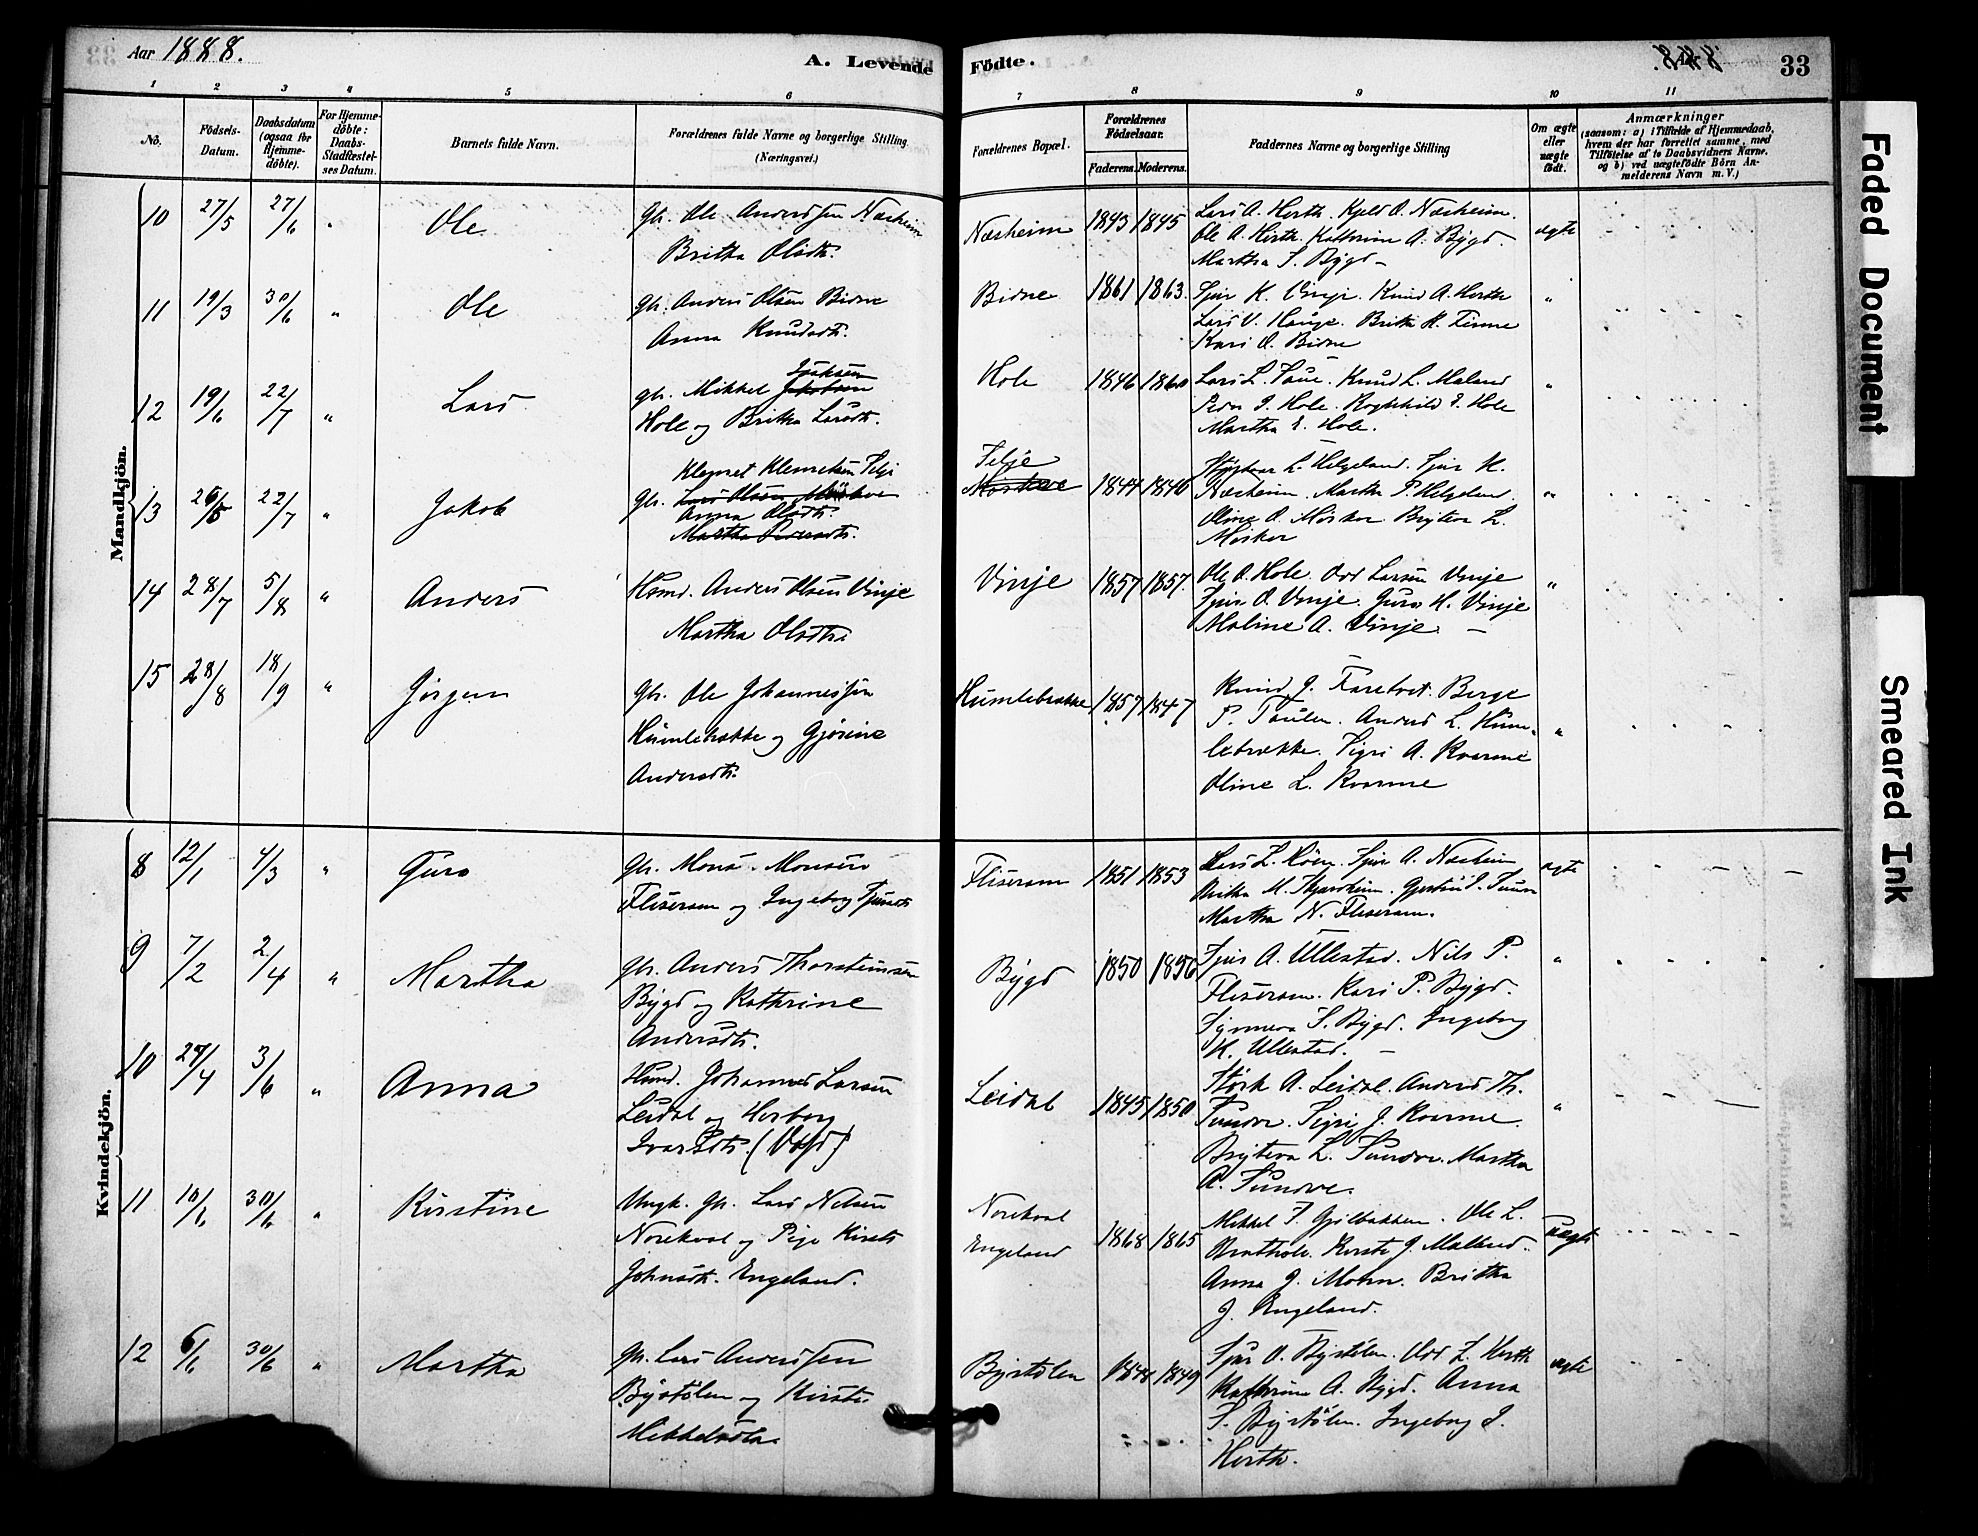 Aar 1888.
A. Levende Födte.
33
1 2 3 4 5 6 7 8 9 10 11
No.
Födsels-
Datum.
Daabsdatum
(ogsaa for
Hjemme-
döbte).
For Hjemme-
döbte:
Daabs-
Stadfæstel-
ses Datum.
Barnets fulde Navn.
Forældrenes fulde Navne og borgerlige Stilling
(Næringsvei.)
Forældrenes Bopæl.
Forældrenes
Födselsaar.
Faderens. Moderens.
Faddernes Navne og borgerlige Stilling
Om ægte
eller
uægte
födt.
Anmærkninger
(saasom: a) i Tilfælde af Hjemmedaab,
hvem der har forrettet samme, med
Tilföielse af to Daabsvidners Navne,
og b) ved uægtefödte Börn An-
melderens Navn m. V.)
Mandkjön.
10 27/5 27/6 " Ole
Gbr. Ole Anderssen Næsheim
Britha Olsdtr.
Næsheim 1843 1845
Lars A. Herth. Kjeld O. Næsheim.
Ole A. Herth. Kathrine A. Bygd.
Martha S. Bygd
ægte
11 19/3 30/6 " Ole
Gbr. Anders Olsen Bidne
Anna Knudsdtr.
Bidne 1861 1863.
Sjur K. Vinje. Knud A. Herth
Lars V. Hauge. Britha K. Finne
Kari O. Bidne
"
12 19/6 22/7 " Lars
Gbr. Mikkel Jakobsen
Hole og Britha Larsdtr.
Hole 1846 1860
Lars L. Saue. Knud L. Maland
Peder I. Hole. Ragnhild E. Hole
Martha E. Hole.
"
13 26/5 22/7 " Jakob
Klemet Klemetsen Selje
Gbr. Lars Olsen Møskor
Anna Olsdtr.
Martha Pedersdtr.
Selje
Møskor
1844 1840
L. Helgeland. Sjur K.
Næsheim. Martha P. Helgeland.
Oline O. Møskor. Bryteva L.
Møskor
"
14 28/7 5/8 " Anders
Husmd. Anders Olsen Vinje
Martha Olsdtr.
Vinje 1857 1857.
Ole O. Hole. Odd Larsen Vinje
Sjur O. Vinje. Guro H. Vinje
Maline A. Vinje.
"
15 28/8 18/9 " Jørgen
Gbr. Ole Johannessen
Humlebrække og Gjørine
Andersdtr.
Humlebrække 1857 1847
Knud J. Faretveit. Berge
P. Saulen. Anders L. Hum-
lebrække. Sigri A. Kvarme
Oline L. Kvarme
"
Kvindekjön.
8 12/1 4/3 " Guro
Gbr. Mons Monsen
Fliseram og Ingeborg Sjursdtr
Fliseram 1851 1853
Lars L. Røen. Sjur A. Næsheim
Britha M. Skjerveheim. Gjertrud S. Sundve
Martha N. Fliseram.
ægte
9 7/2 2/4 " Martha
Gbr. Anders Thorsteinsen
Bygd og Kathrine
Andersdtr.
Bygd 1850 1856
Sjur A. Ullestad. Nils P.
Fliseram. Kari P. Bygd.
Synneva S. Bygd. Ingeborg
K. Ullestad.
"
10 27/4 3/6 " Anna
Husmd. Johannes Larsen
Leidal og Herborg
Ivarsdtr. (Voss)
Leidal 1845 1850
Størk A. Leidal. Anders Th.
Sundve. Sigri J. Kvarme.
Bryteva L. Sundve. Martha
A. Sundve.
"
11 10/6 30/6 " Kirstine
Ungk. Gbr. Lars Nelsen
Norekval og Pige Kirsti
Johnsdtr. Engeland.
Norekval
Engeland
1868 1865
Mikkel T. Gjilbakken. Ole L.
Brathole. Kirsti J. Mælland.
Anna J. Moen. Britha
J. Engeland.
uægte
12 6/6 30/6 " Martha
Gbr. Lars Anderssen
Byrstølen og Kirsti
Mikkelsdtr.
Byrstølen 1844 1849
Sjur O. Byrstølen. Odd L. Herth
Kathrine A. Bygd. Anna
S. Byrstølen. Ingeborg I.
Herth.
ægte
Faded Document
Smeared Ink